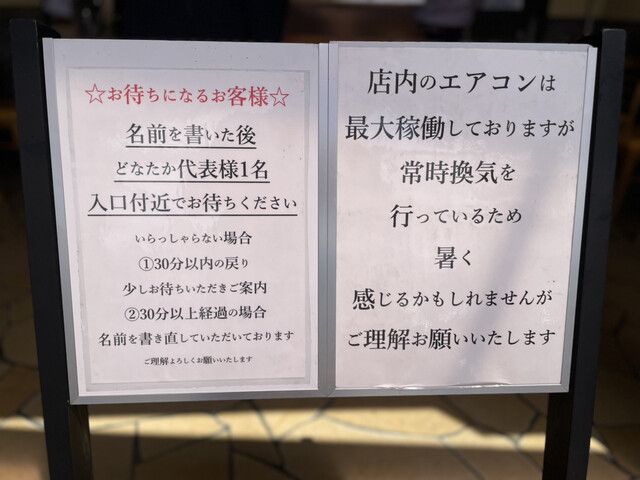 ☆お待ちになるお客様☆
名前を書いた後
どなたか代表様1名
入口付近でお待ちください
いらっしゃらない場合
①30分以内の戻り
少しお待ちいただきご案内
②30分以上経過の場合
名前を書き直していただいております
ご理解よろしくお願いいたします
店内のエアコンは
最大稼働しておりますが
常時換気を
行っているため
暑く
感じるかもしれませんが
ご理解お願いいたします